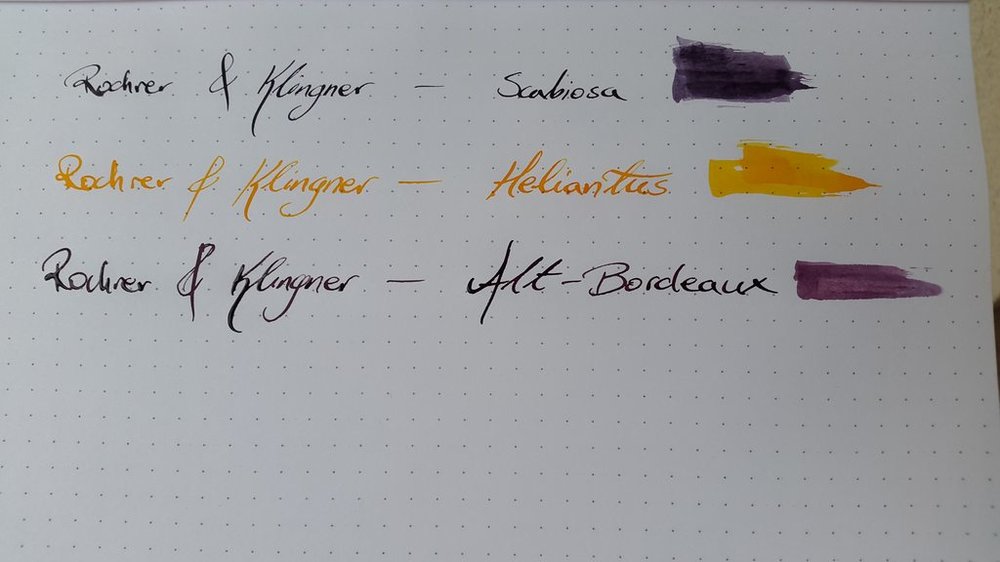 Rohrer & Klingner – Scabiosa
Rohrer & Klingner – Heliantus
Rohrer & Klingner – Alt-Bordeaux